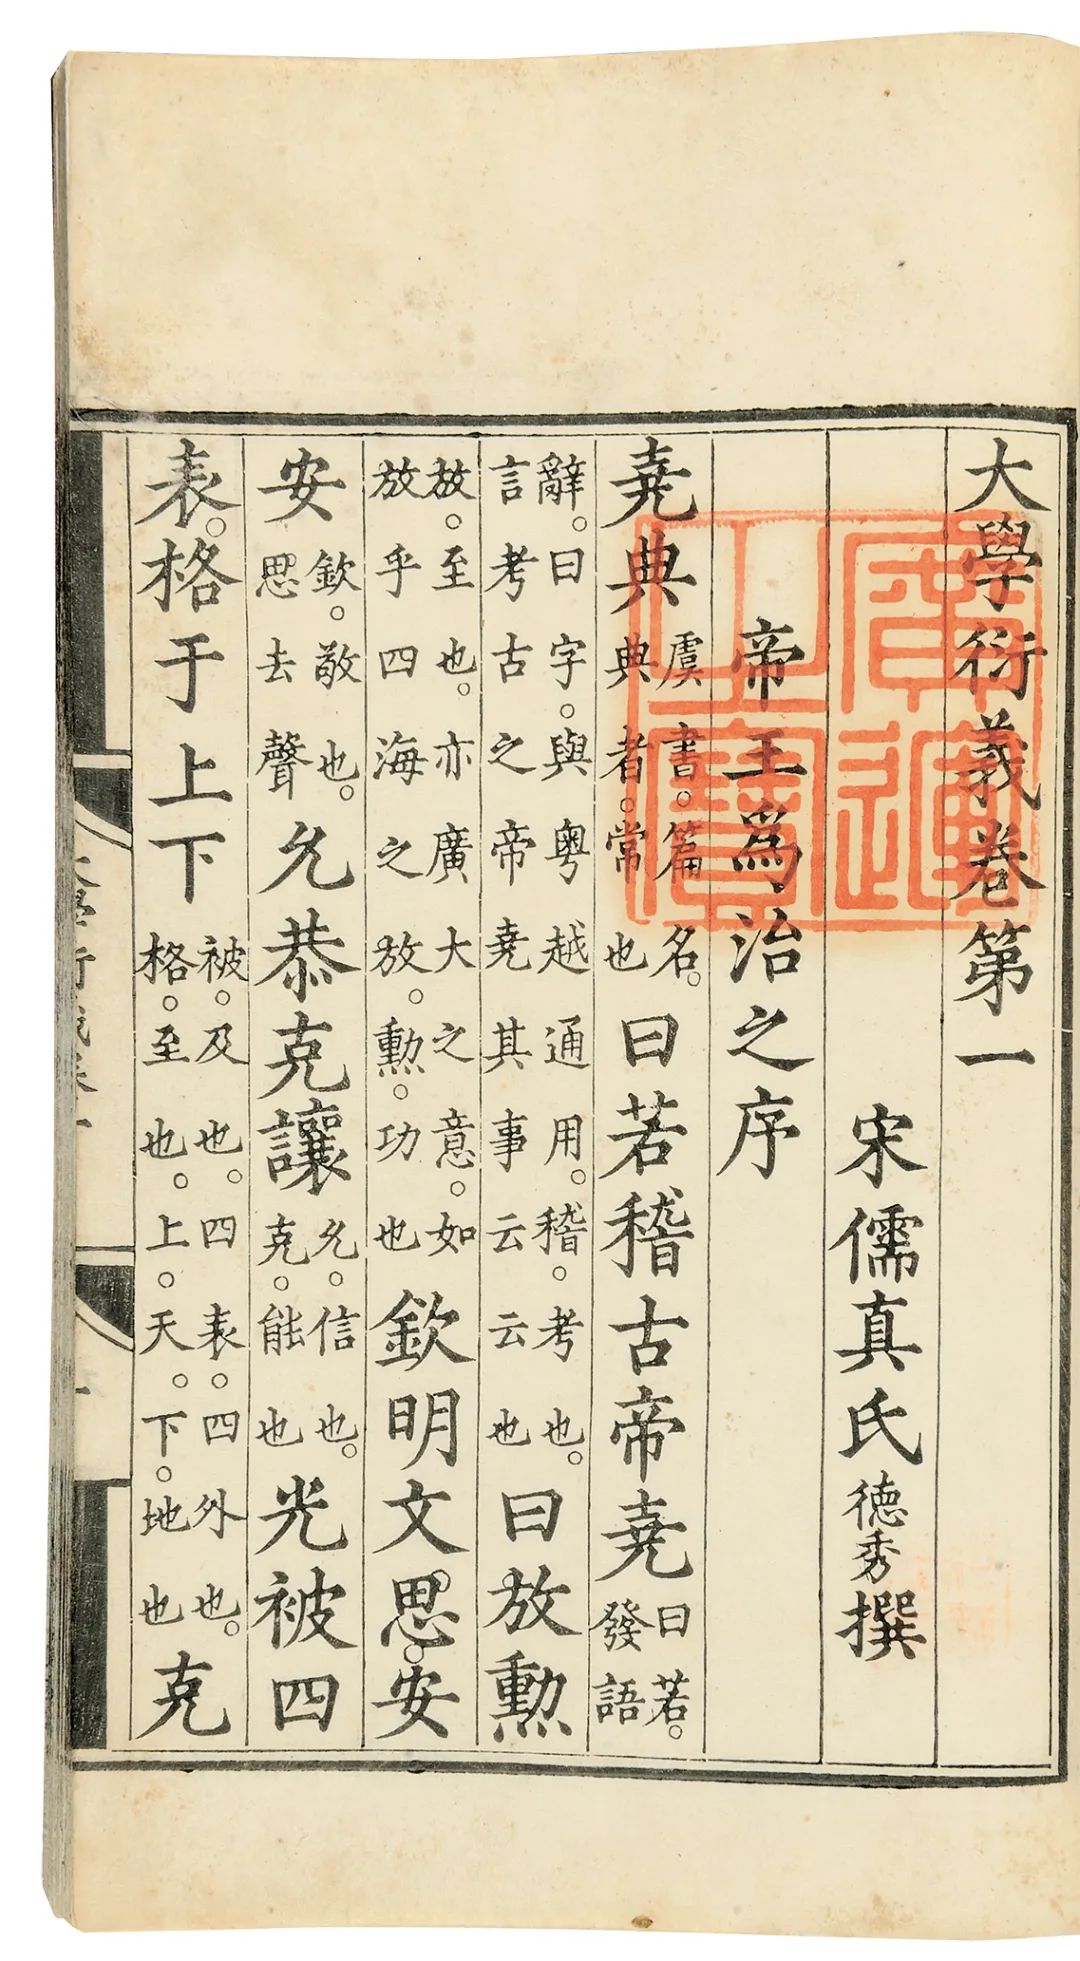 大學衍義卷第一
宋儒真氏德秀撰
帝王爲治之序
堯典虞書。篇名。典者。常也曰若稽古帝堯曰若。發語
辭。曰字。與粤越通用。稽。考也。言考古之帝堯其事云云也曰放勳
放。至也。亦廣大之意。如放乎四海之放。勳。功也欽明文思。安
安欽。敬也。思去聲允恭克讓允。信也。克。能也光被四
表。格于上下被。及也。四表。四外也。格。至也。上。天。下。地也克
廣運之寶